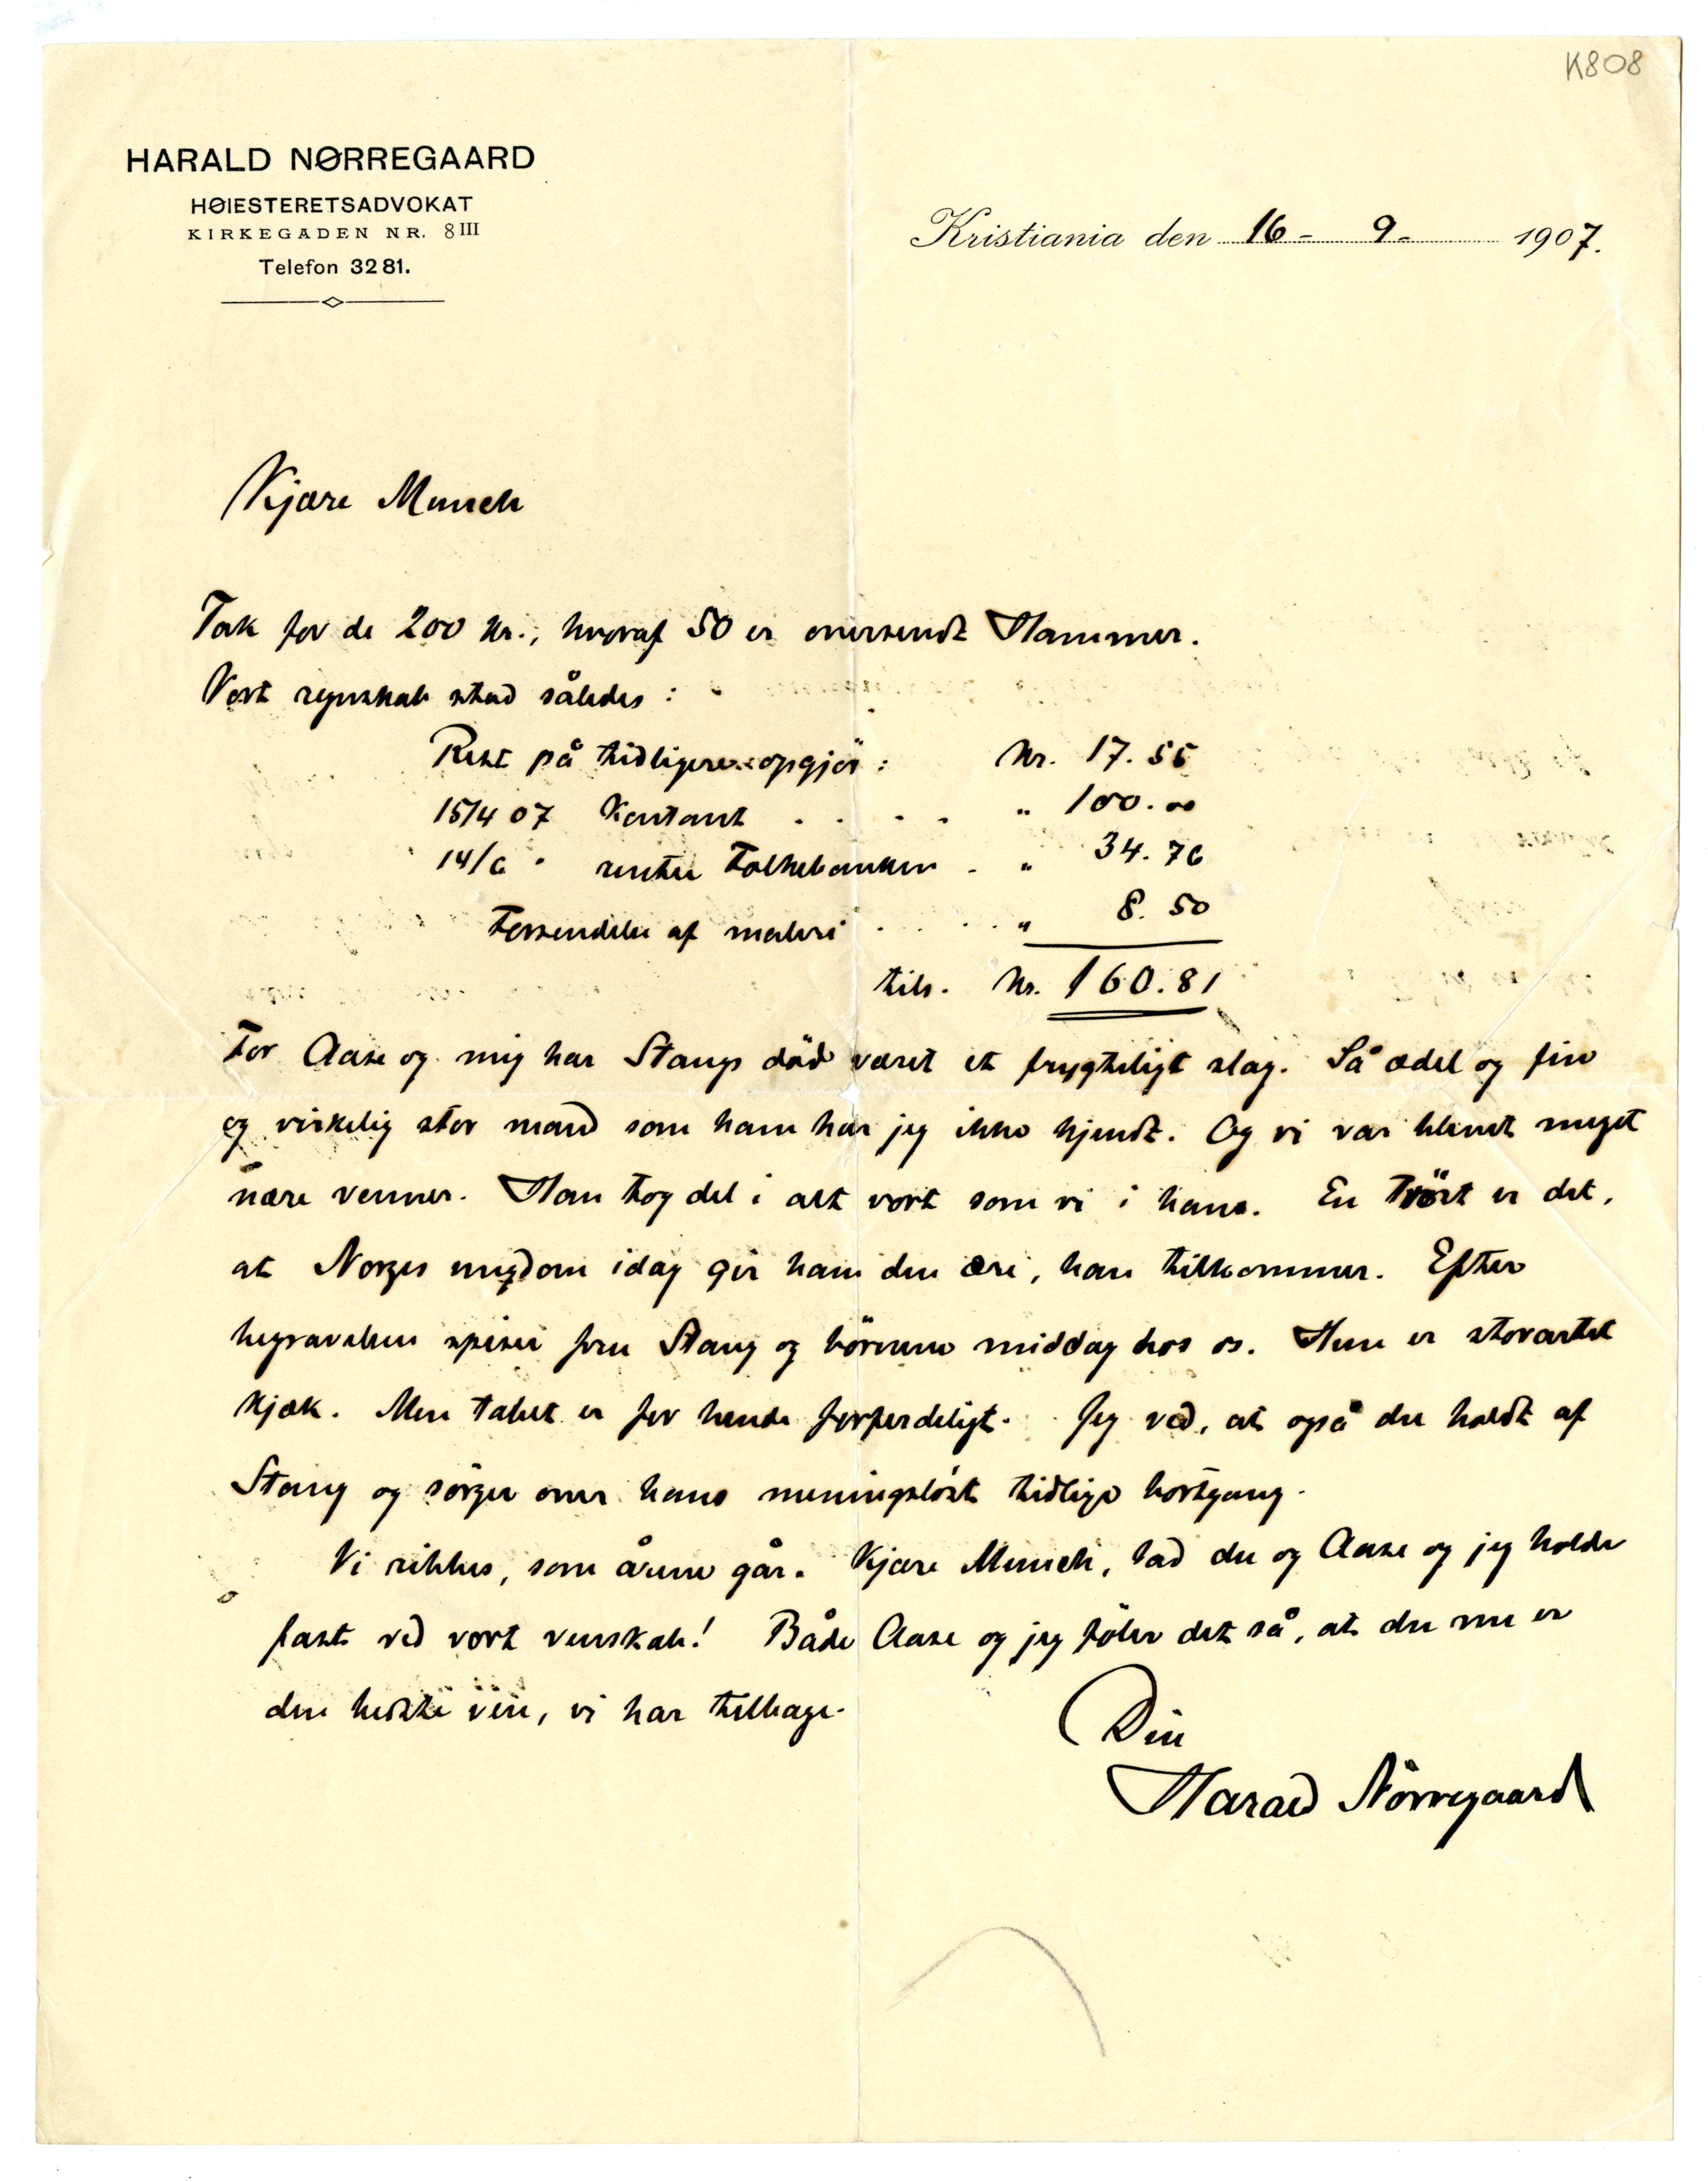 K808
HARALD NØRREGAARD
HØIESTERETSADVOKAT
KIRKEGADEN NR. 8 III
Telefon 3281.
Kristiania den 16 - 9 - 1907.
Kjære Munch
Tak for de 200 kr., hvoraf 50 er oversendt Hammer.
Vort regnskab stod således:
Rest på tidligere opgjör: kr. 17.55
15/4 07 Kontant . . . . " 100.00
14/6 " renter Folkebanken . " 34.76
Forsendelse af maleri . . . . " 8.50
tils. kr. 160.81
For Aase og mig har Stangs död været et frygteligt slag. Så ædel og fin
og virkelig stor mand som ham har jeg ikke kjendt. Og vi var blevet meget
nære venner. Han tog del i alt vort som vi i hans. En tröst er det,
at Norges ungdom idag gir ham den ære, han tilkommer. Efter
begravelsen spiser fru Stang og börnene middag hos os. Hun er storartet
kjæk. Men tabet er for hende forferdeligt. Jeg ved, at også du holdt af
Stang og sörger over hans meningslöst tidlige bortgang.
Vi rykkes, som årene går. Kjære Munch, lad du og Aase og jeg holde
fast ved vort venskab! Både Aase og jeg föler det så, at du nu er
den bedste ven, vi har tilbage.
Din
Harald Nörregaard